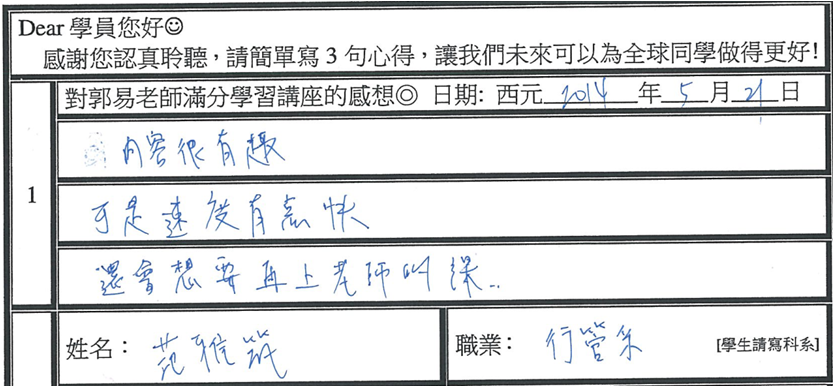 Dear 學員您好☺
感謝您認真聆聽，請簡單寫 3 句心得，讓我們未來可以為全球同學做得更好!
對郭易老師滿分學習講座的感想◎ 日期: 西元 2014 年 5 月 21 日
1
內容很有趣
可是速度有點快
還會想要再上老師的課..
姓名： 范雅筑
職業： 行管系 [學生請寫科系]